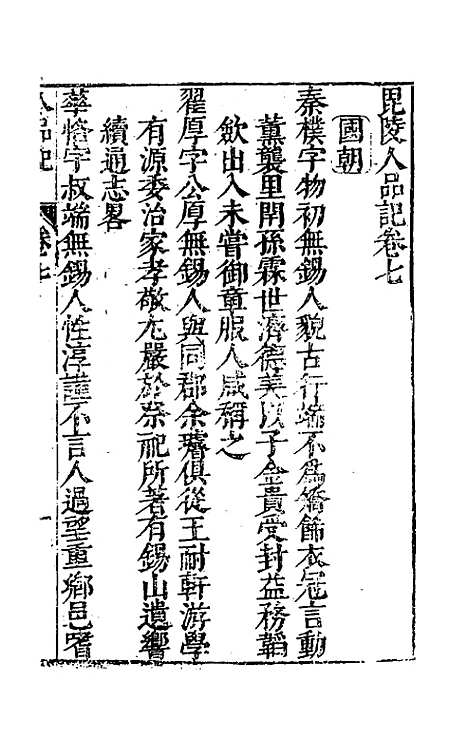 毘陵人品記卷七
國朝
秦樸字物初無錫人貌古行端不爲矯飾衣冠言動
薰襲里閈孫霖世濟德美以子金貴受封益務韜
斂出入未嘗御童服人咸稱之
翟厚字公厚無錫人與同郡余瑃俱從王耐軒游學
有源委治家孝敬尤嚴於祭祀所著有錫山遺響
續通志畧
華恪字叔端無錫人性淳謹不言人過望重鄉邑嗜
人品記 卷七 一